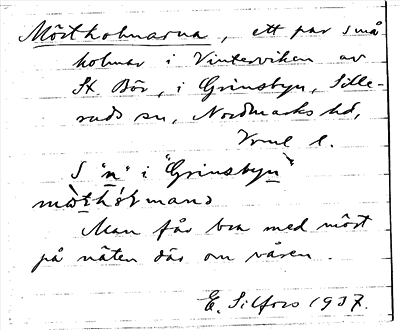 Mörtholmarna, ett par små
holmar i Vinterviken av
St. Bör, i Grinsbyn, Sille-
ruds sn, Nordmarks hd,
Vrml l.
S "n" i "Grinsbyn"
man
Man får bra med mört
på näten där om våren.
E. Silfors 1937.